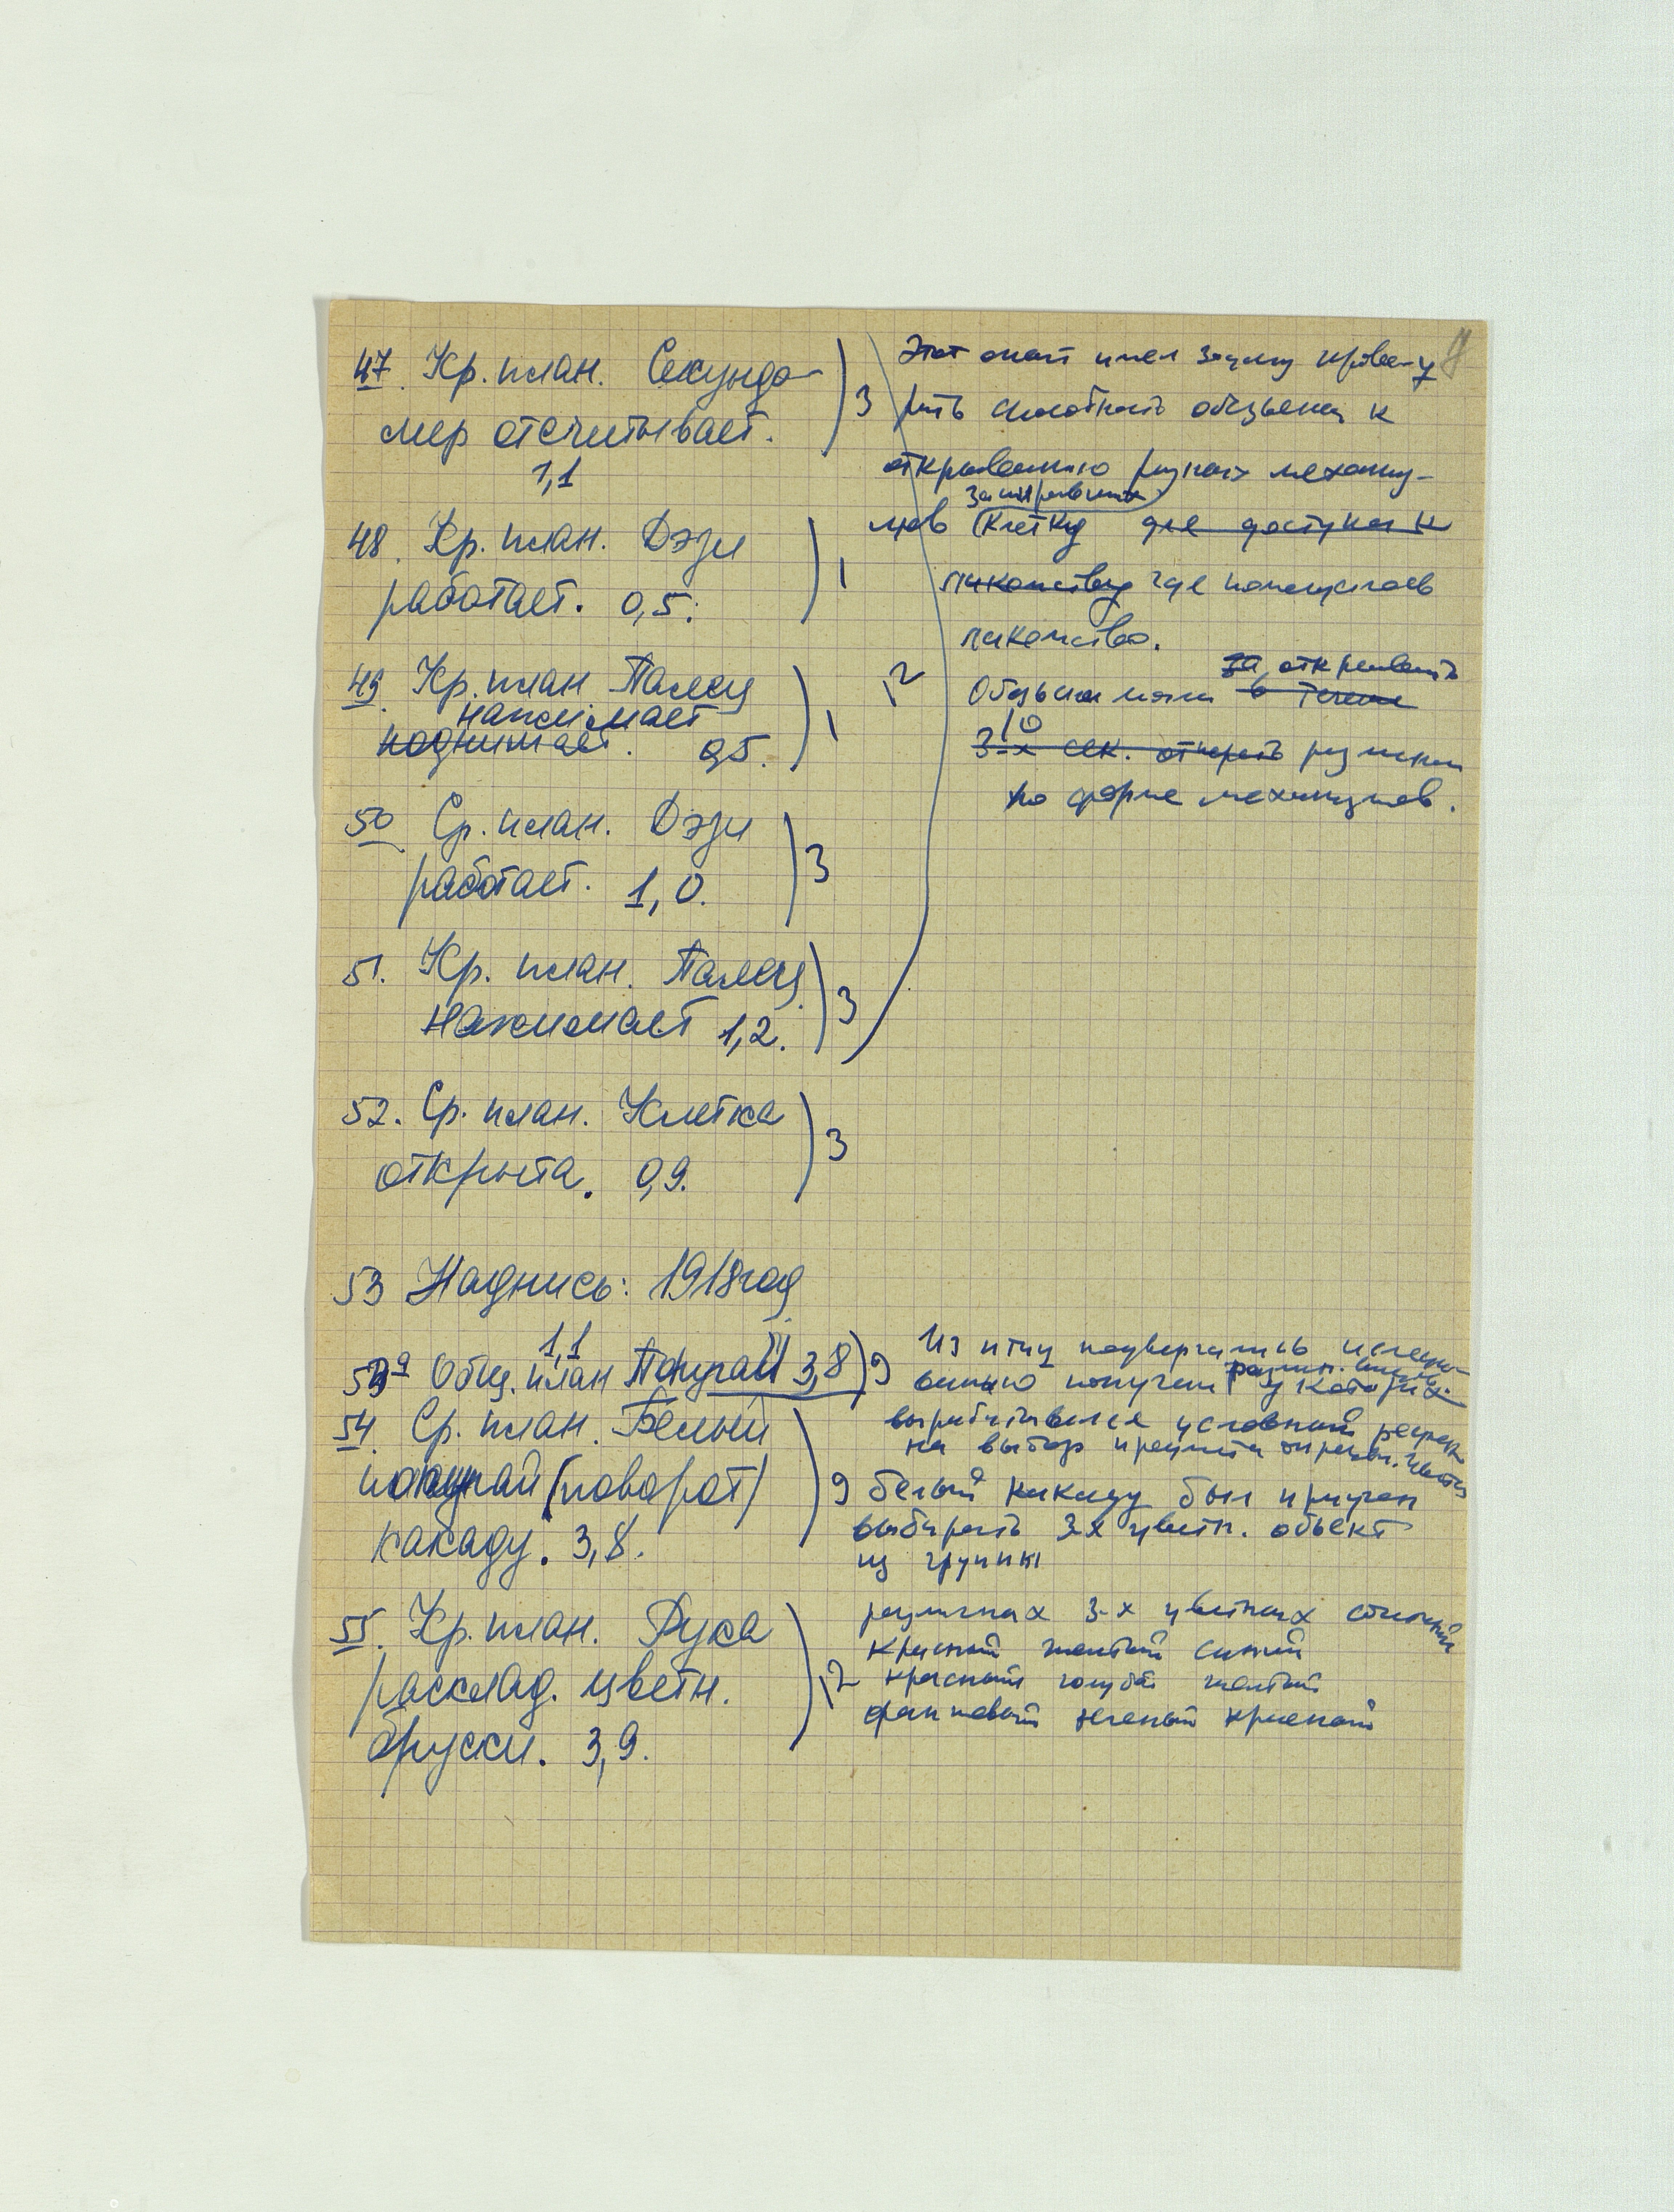 47. Кр. план. Секундо-
мер отсчитывает.
1,1
3
48. Кр. план. Дэзи
работает. 0,5.
1
49. Кр. план Палец
нажимает
поднимает. 0,5.
1
50 Ср. план. Дэзи
работает. 1,0.
3
51. Кр. план. Палец
нажимает 1,2.
3
52. Ср. план. Клетка
открыта. 0,9.
3
12
Этот опыт имел задачу
рить способность обезьяны к
открыванию разных механиз-
мов клетку для доступа к
лакомству где
лакомство.
Обезьяна за открывать
в течен
10
3-х сек. открыть
по форме механизмов.
53 Надпись: 1918 год
1,1
53а Общ. план Попугай 3,8 9
54. Ср. план. Белый
попугай (поворот)
какаду. 3,8.
9
55. Кр. план. Рука
расклад. цветн.
бруски. 3,9.
12
Из птиц подвергались исследо-
ванию попугаи у которых
вырабатывался условный рефлекс
на выбор предмета
белый какаду был приучен
выбирать 3-х цветн. объект
из группы
различных 3-х цветных
красный желтый синий
красный голубой желтый
зеленый красный